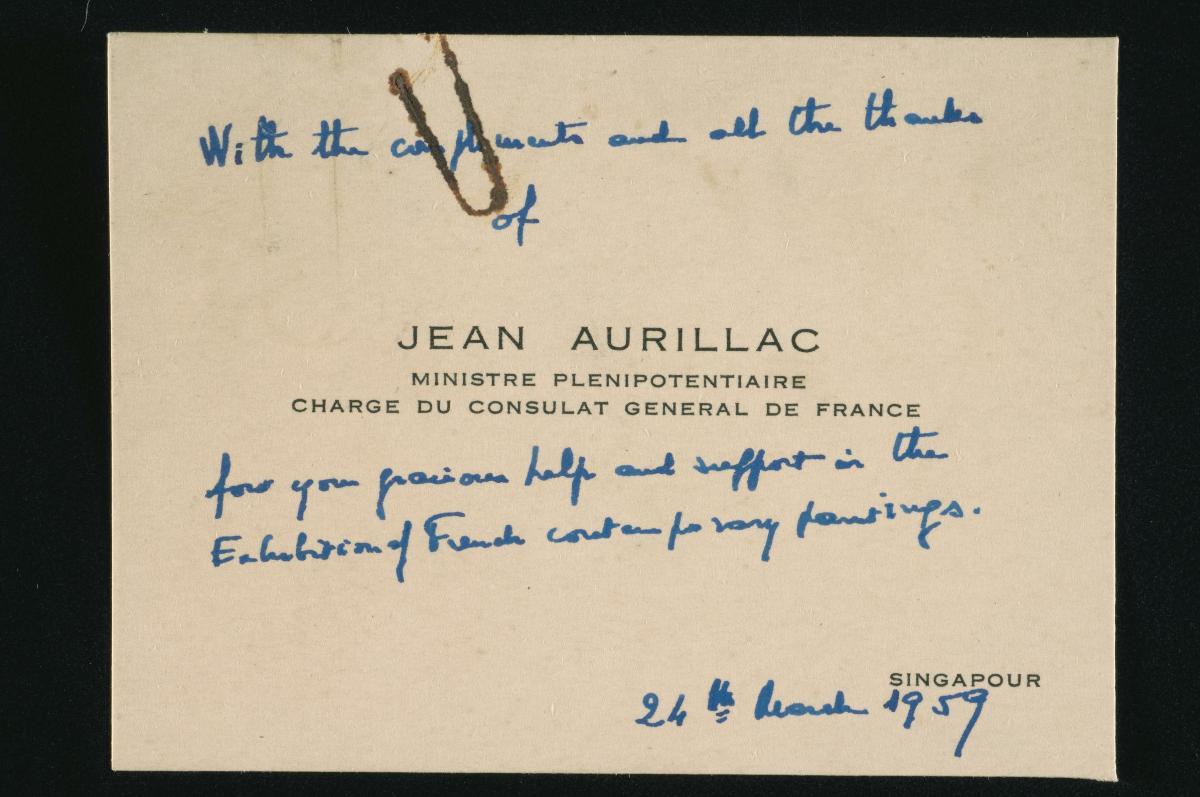 With the compliments and all the thanks
of
JEAN AURILLAC
MINISTRE PLENIPOTENTIAIRE
CHARGE DU CONSULAT GENERAL DE FRANCE
for your gracious help and support in the
Exhibition of French contemporary paintings.
SINGAPOUR
24th March 1959